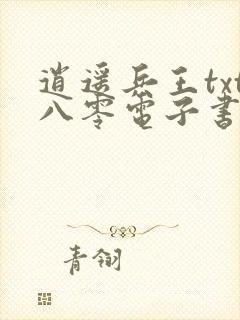 逍遥兵王txt
八零电子书
青翎